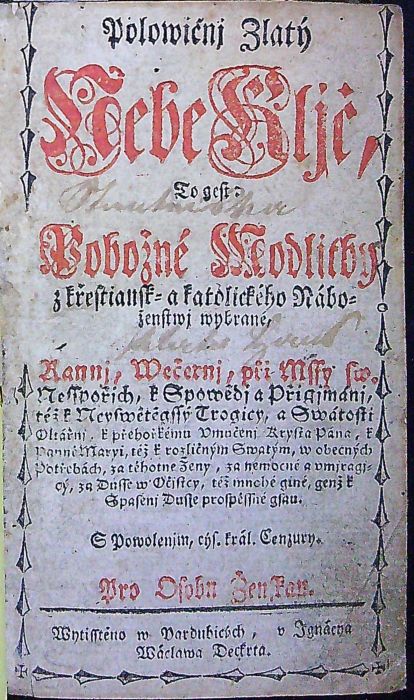 Polowičnj Zlatý
Nebe Kljč,
To gest:
Pobožné Modlitby
z křestiansk- a katolického Nábo-
ženstwj wybrané,
Rannj, Wečernj, při Mssy sw.
Nesspořjch, k Spowědj a Přigjmánj,
též k Neyswětěgssý Trogicy, a Swátosti
Oltářnj, k přehořkému Vmučenj Krysta Pána, k
Panně Maryi, též k rozličným Swatým, w obecných
Potřebách, za těhotné Ženy, za nemocné a vmjragj-
cý, za Dusse w Očistcy, též mnohé giné, genž k
Spasenj Dusse prospěssné gsau.
S Powolenjm, cýs. král. Cenzury.
Pro Osobu Ženskau.
Wytisstěno w Pardubicých, v Ignácya
Wáclawa Deckrta.